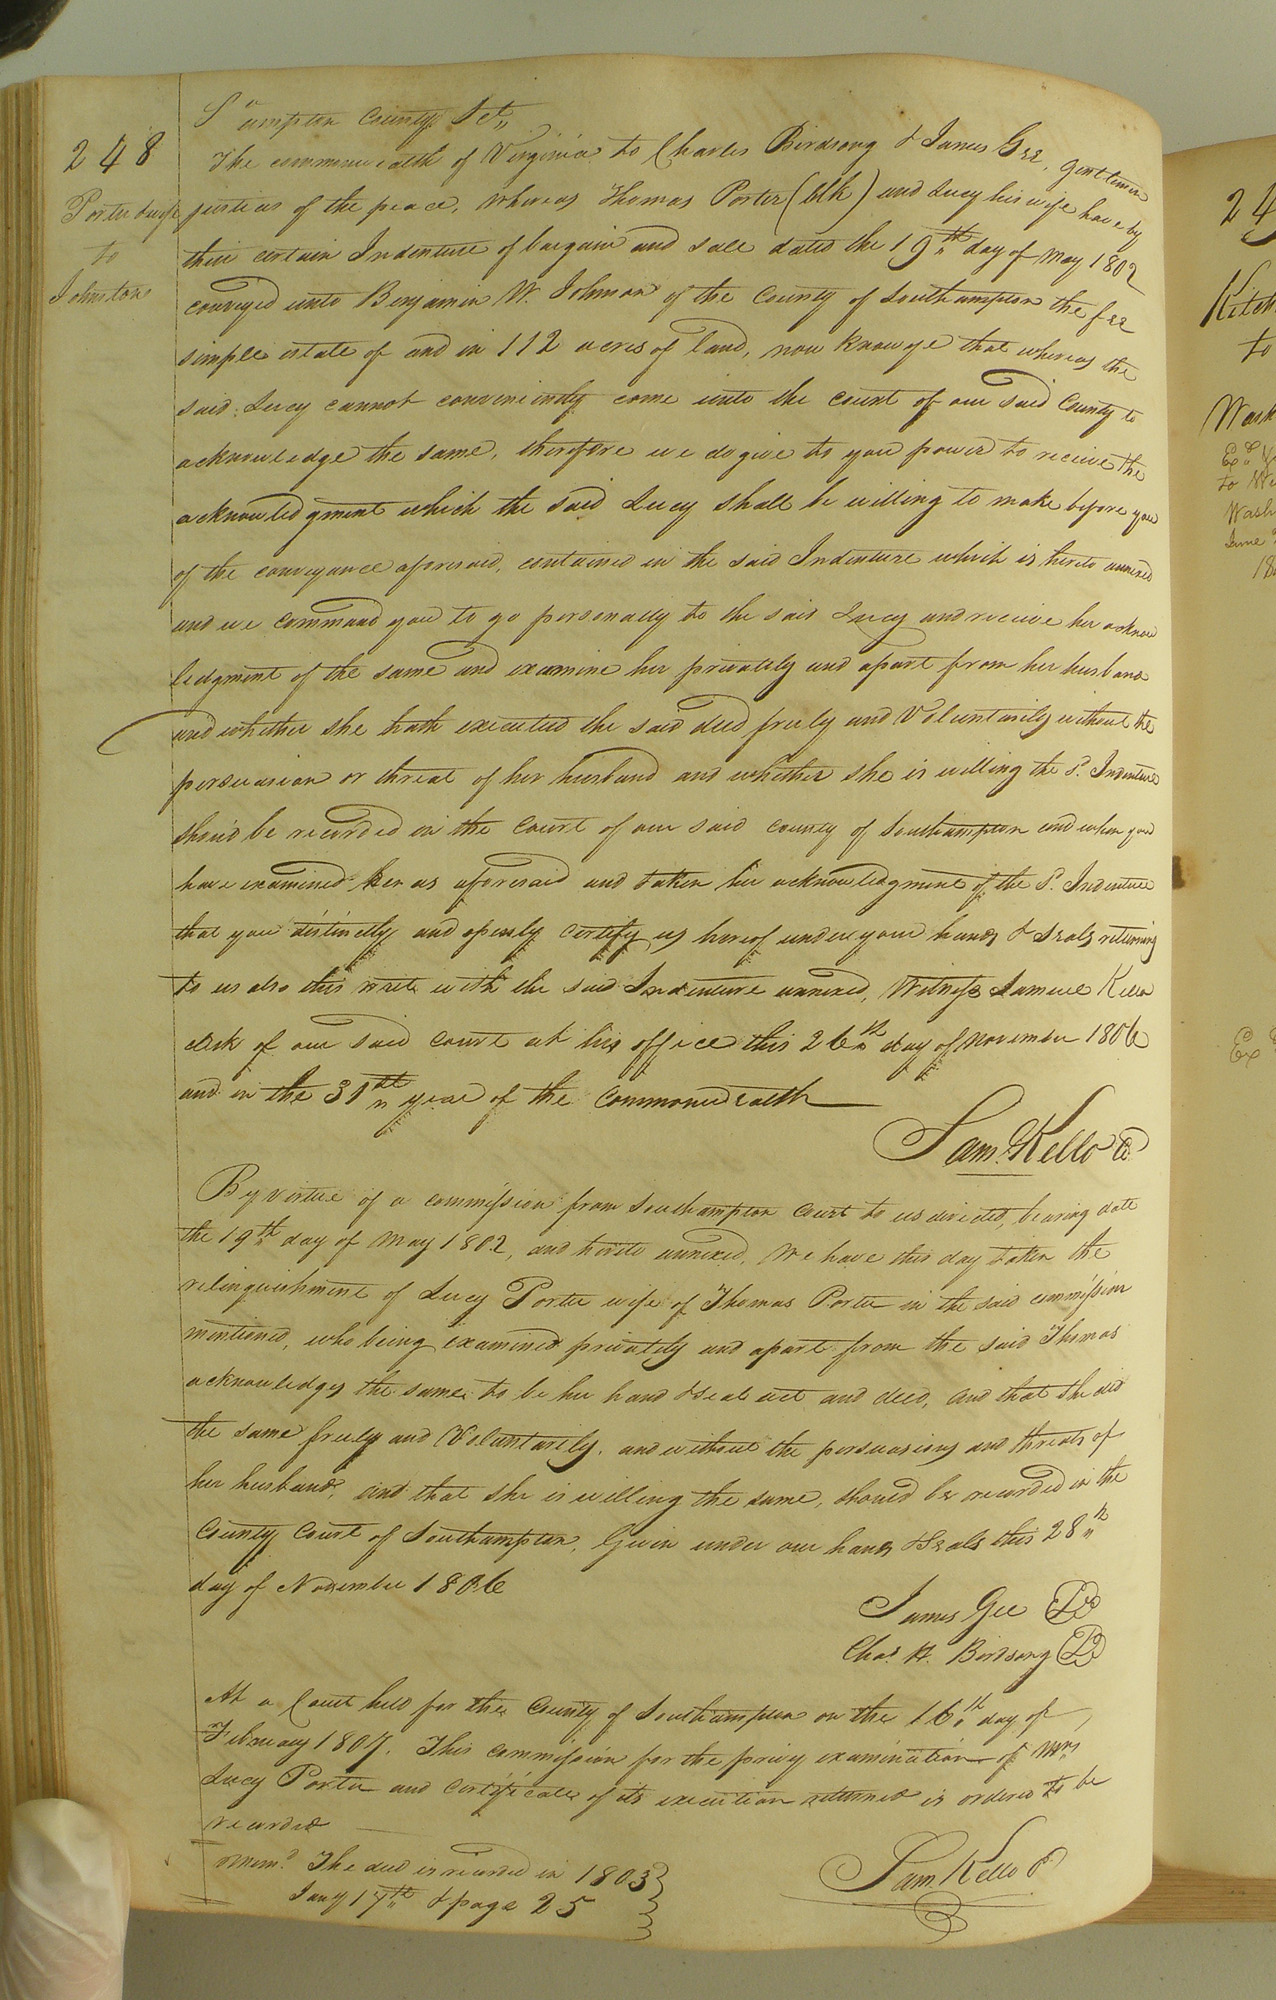 248
Porter &ux
to
Johnston
S°ampton County Sct,,
The commonwealth of Virginia to Charles Birdsong & James Gee, gentlemen
justices of the peace, whereas Thomas Porter (blk) and Lucy his wife have by
their certain Indenture of bargain and sale dated the 19th day of May 1802
conveyed unto Benjamin W. Johnson of the County of Southampton the fee
simple estate of and in 112 acres of land, now know ye that whereas the
said Lucy cannot conveniently come unto the court of our said County to
acknowledge the same, therefore we do give to you power to receive the
acknowledgment which the said Lucy shall be willing to make before you
of the conveyance aforesaid, contained in the said Indenture which is hereto annexed
and we command you to go personally to the said Lucy and receive her acknow
ledgment of the same and examine her privately and apart from her husband
and whether she hath executed the said deed freely and Voluntarily without the
persuasion or threat of her husband and whether she is willing the S. Indenture
should be recorded in the court of our said county of Southampton and when you
have examined her as aforesaid and taken her acknowledgment of the S. Indenture
that you distinctly and openly certify us hereof under your hands & seals returning
to us also this writ with the said Indenture annexed, Witness Samuel Kello
clerk of our said court at his office this 26th day of November 1806
and in the 31st year of the Commonwealth
Sam. Kello C
By virtue of a commission from Southampton Court to us directed, bearing date
the 19th day of May 1802, and hereto annexed, We have this day taken the
relinquishment of Lucy Porter wife of Thomas Porter in the said commission
mentioned, who being examined privately and apart from the said Thomas
acknowledges the same to be her hand & seal act and deed, and that she did
the same freely and Voluntarily, and without the persuasions and threats of
her husband, and that she is willing the same, should be recorded in the
County Court of Southampton, Given under our hands & seals this 28th
day of November 1806
James Gee LS
Chas. H. Birdsong LS
At a Court held for the County of Southampton on the 16th day of
February 1807. This commission for the privy examination of Mrs
Lucy Porter and certificate of its execution returned is ordered to be
recorded
Sam Kello C
Memd. The deed is recorded in 1803
Jany 17th & page 25
24
Kitch
to
Wash
to Wi
Wash
June
18
Ex